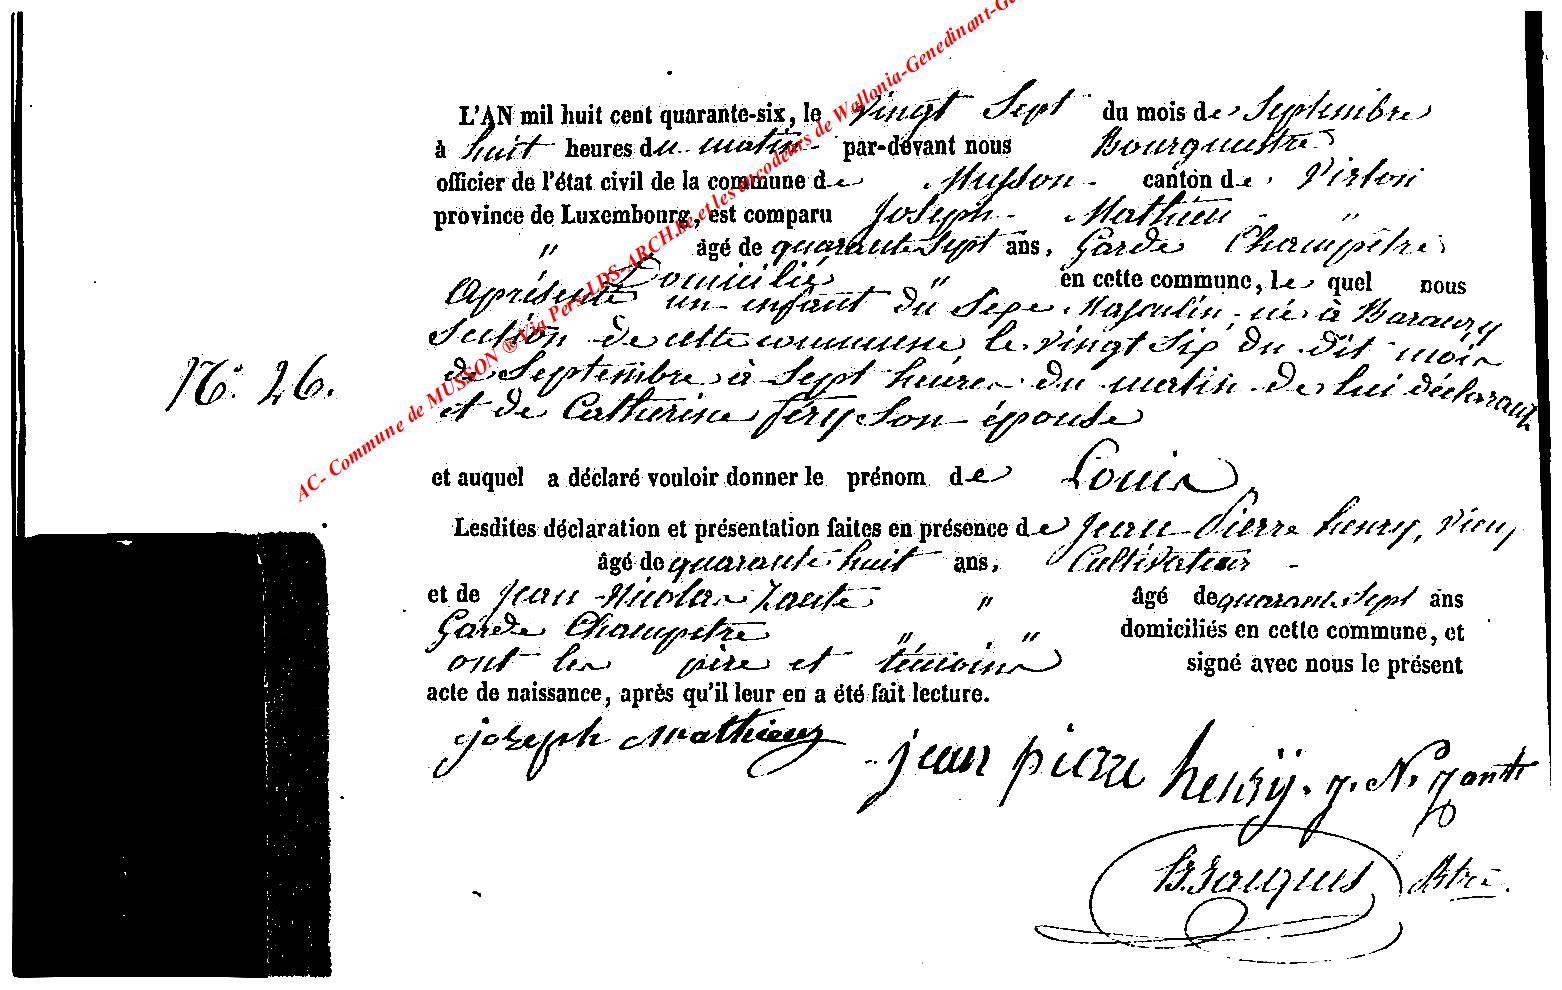 AC- Commune de MUSSON ® Via Pers-LDS-ARCH.be et les encodeurs de Wallonia-Genedinant-Ge
L'AN mil huit cent quarante-six, le vingt Sept du mois de Septembre
à huit heures du matin par-devant nous Bourguestre
officier de l'état civil de la commune de Musson canton de Virton
province de Luxembourg, est comparu Joseph Mathieu "
" âgé de quarante Sept ans, Garde Champêtre
Domicilié " en cette commune, le quel nous
Aprésenté un enfant du Sexe Masculin né à Baranzy
Section de cette commune le vingt Six du dit mois
de Septembre à Sept heures du matin de lui déclarant
et de Catherine féry Son épouse
N° 26.
et auquel a déclaré vouloir donner le prénom de Louis
Lesdites déclaration et présentation faites en présence de Jean Pierre henry,
âgé de quarante huit ans, Cultivateur
et de Jean Nicolas Zante " âgé de quarante Sept ans
Garde Champetre " " domiciliés en cette commune, et
ont les père et témoins signé avec nous le présent
acte de naissance, après qu'il leur en a été fait lecture.
joseph Mathieu
jean pierre henrÿ. J. N. Zante
Jacques Btre.